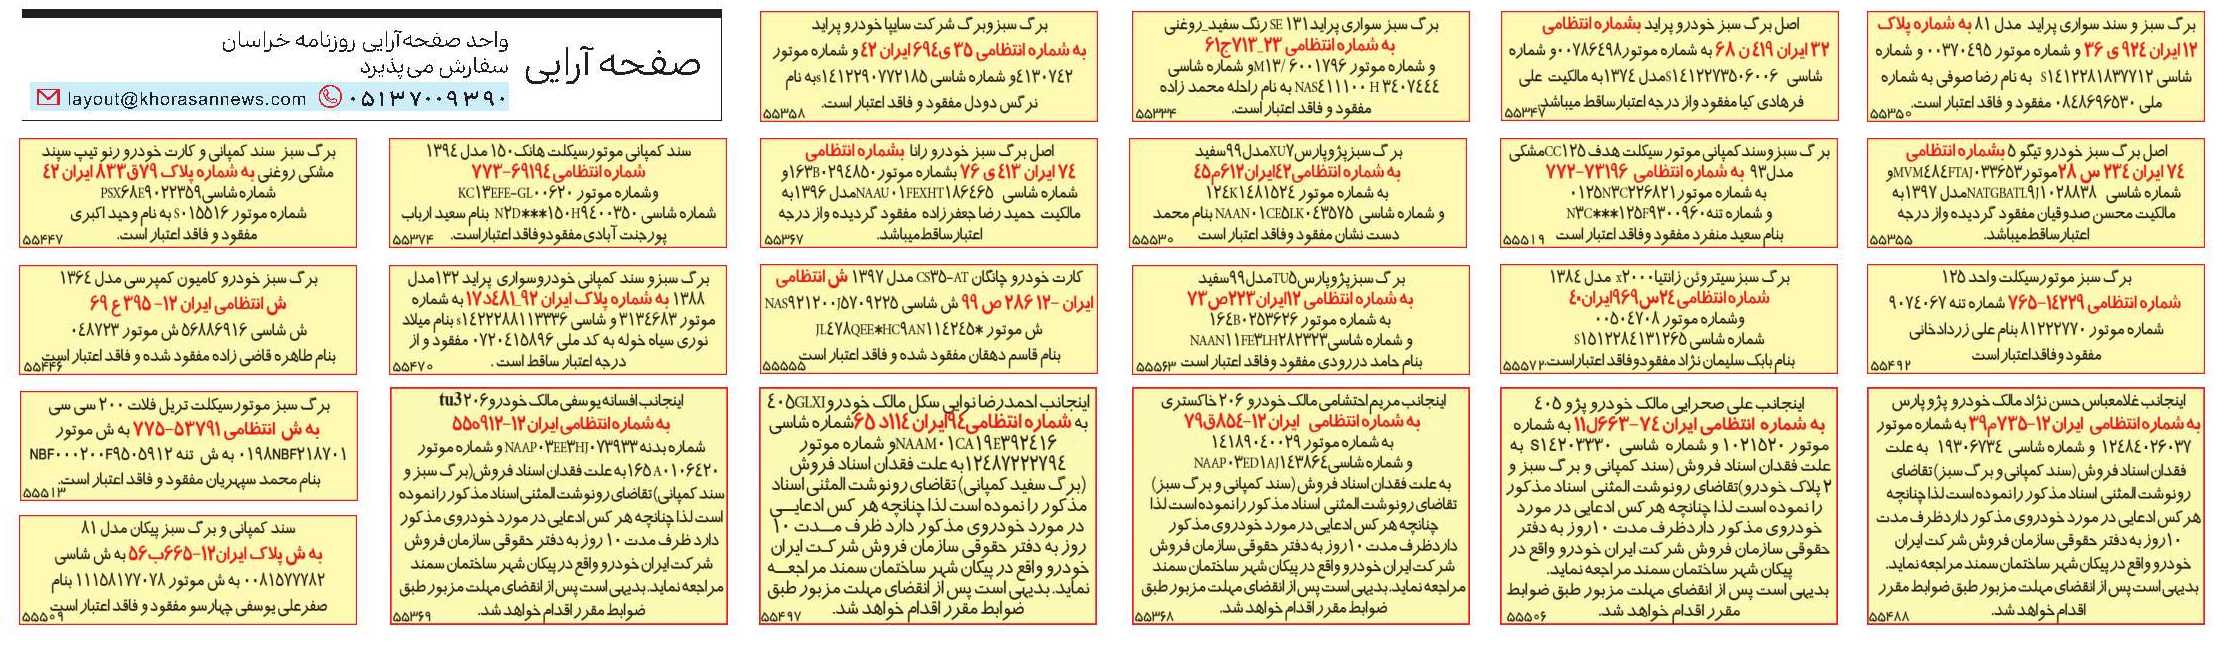 برگ سبز و سند سواری پراید مدل ۸۱ به شماره پلاک
۱۲ایران ۹۲۴ ی ۳۶ و شماره موتور ۰۰۳۷۰۴۹۵ و شماره
شاسی s۱۴۱۲۲۸۱۸۳۷۷۱۲ به نام رضا صوفی به شماره
ملی ۰۸۴۸۶۹۶۵۳۰ مفقود و فاقد اعتبار است.
۵۵۳۵۰
اصل برگ سبز خودرو پراید بشماره انتظامی
۳۲ ایران ۴۱۹ ن ۶۸ به شماره موتور۰۰۷۸۶۴۹۸و شماره
شاسی s۱۴۱۲۲۷۳۵۰۶۰۰۶مدل ۱۳۷۴به مالکیت علی
فرهادی کیا مفقود واز درجه اعتبارساقط میباشد.
۵۵۳۴۷
برگ سبز سواری پراید۱۳۱ SE رنگ سفید_روغنی
به شماره انتظامی ۲۳_۷۱۳ج۶۱
و شماره موتور M۱۳/ ۶۰۰۱۷۹۶و شماره شاسی
NAS۴۱۱۱۰۰ H ۳۴۰۷۴۴۴ به نام راحله محمد زاده
مفقود و فاقد اعتبار است.
۵۵۳۳۴
برگ سبزوبرگ شرکت سایپا خودرو پراید
به شماره انتظامی ۳۵ ی۶۹۴ ایران ۴۲ و شماره موتور
۴۱۳۰۷۴۲و شماره شاسی s۱۴۱۲۲۹۰۷۷۲۱۸۵به نام
نرگس دودل مفقود و فاقد اعتبار است.
۵۵۳۵۸
صفحه آرایی
واحد صفحه‌آرایی روزنامه خراسان
سفارش می‌پذیرد
۰۵۱۳۷۰۰۹۳۹۰ layout@khorasannews.com
اصل برگ سبز خودرو تیگو ۵ بشماره انتظامی
۷۴ ایران ۲۳۴ س ۲۸ موتورMVM۴۸۴FTAJ۰۳۳۶۵۳و
شماره شاسی NATGBATL۹J۱۰۲۸۸۳۸مدل ۱۳۹۷به
مالکیت محسن صدوقیان مفقود گردیده واز درجه
اعتبارساقط میباشد.
۵۵۳۵۵
برگ سبزوسند کمپانی موتور سیکلت هدف CC۱۲۵مشکی
مدل۹۳ به شماره انتظامی ۷۳۱۹۶-۷۷۲
به شماره موتور ۰۱۲۵N۳C۲۲۶۸۲۱
و شماره تنه N۳C***۱۲۵F۹۳۰۰۹۶۰
بنام سعید منفرد مفقود وفاقد اعتبار است
۵۵۵۱۹
برگ سبزپژوپارس XU۷مدل۹۹سفید
به شماره انتظامی۴۲ایران۶۱۲م۴۵
به شماره موتور ۱۲۴K۱۴۸۱۵۲۴
و شماره شاسی NAAN۰۱CE۵LK۰۴۳۵۷۵بنام محمد
دست نشان مفقود وفاقد اعتبار است
۵۵۵۳۰
اصل برگ سبز خودرو رانا بشماره انتظامی
۷۴ ایران ۴۱۳ ی ۷۶ بشماره موتور ۱۶۳B۰۲۹۴۸۵۰و
شماره شاسی NAAU۰۱FEXHT۱۸۶۴۶۵مدل ۱۳۹۶به
مالکیت حمید رضا جعفرزاده مفقود گردیده واز درجه
اعتبارساقط میباشد.
۵۵۳۶۷
سند کمپانی موتورسیکلت هانک۱۵۰ مدل ۱۳۹۴
شماره انتظامی ۶۹۱۹۴-۷۷۳
وشماره موتور KC۱۳EFE-GL۰۰۶۲۰
شماره شاسی N۲D***۱۵۰H۹۴۰۰۳۵۰ بنام سعید ارباب
پورجنت آبادی مفقودوفاقد اعتباراست.
۵۵۳۷۴
برگ سبز سند کمپانی و کارت خودرو رنو تیپ سپند
مشکی روغنی به شماره پلاک ۷۹ق۸۳۳ ایران ۴۲
شماره شاسی PSX۶۸E۹۰۲۲۳۵۹
شماره موتور S۰۱۵۵۱۶ به نام وحید اکبری
مفقود و فاقد اعتبار است.
۵۵۴۴۷
برگ سبز موتورسیکلت واحد ۱۲۵
شماره انتظامی ۱۴۲۲۹-۷۶۵ شماره تنه ۹۰۷۴۰۶۷
شماره موتور ۸۱۲۲۲۷۷۰ بنام علی زردادخانی
مفقود وفاقداعتبار است
۵۵۴۹۲
برگ سبزسیتروئن زانتیا۲۰۰۰x مدل ۱۳۸۴
شماره انتظامی۲۴س۹۶۹ایران۴۰
وشماره موتور ۰۰۵۰۴۷۰۸
شماره شاسی S۱۵۱۲۲۸۴۱۳۱۲۶۵
بنام بابک سلیمان نژاد مفقودوفاقد اعتباراست.
۵۵۵۷۲
برگ سبزپژوپارسTU۵مدل۹۹سفید
به شماره انتظامی ۱۲ایران۲۲۳ص۷۳
به شماره موتور ۱۶۴B۰۲۵۳۶۲۶
و شماره شاسیNAAN۱۱FE۳LH۲۸۲۳۲۳
بنام حامد دررودی مفقود وفاقد اعتبار است
۵۵۵۶۳
کارت خودرو چانگان CS۳۵-AT مدل ۱۳۹۷ ش انتظامی
ایران -۱۲ ۲۸۶ ص ۹۹ ش شاسی NAS۹۲۱۲۰۰J۵۷۰۹۲۲۵
ش موتور *JL۴۷۸QEE*HC۹AN۱۱۴۲۴۵
بنام قاسم دهقان مفقود شده و فاقد اعتبار است
۵۵۵۵۵
برگ سبزو سند کمپانی خودروسواری پراید ۱۳۲مدل
۱۳۸۸ به شماره پلاک ایران ۹۲_۴۸۱د۱۷ به شماره
موتور ۳۱۳۴۶۸۳ و شاسی s۱۴۲۲۲۸۸۱۱۳۳۳۶ بنام میلاد
نوری سیاه خوله به کد ملی ۰۷۲۰۴۱۵۸۹۶ مفقود و از
درجه اعتبار ساقط است .
۵۵۴۷۰
برگ سبز خودرو کامیون کمپرسی مدل ۱۳۶۴
ش انتظامی ایران ۱۲- ۳۹۵ ع ۶۹
ش شاسی ۵۶۸۸۶۹۱۶ ش موتور ۰۴۸۷۲۳
بنام طاهره قاضی زاده مفقود شده و فاقد اعتبار است
۵۵۴۴۶
اینجانب غلامعباس حسن نژاد مالک خودرو پژو پارس
به شماره انتظامی ایران ۱۲-۷۳۵م۳۹ به شماره موتور
۱۲۴۸۴۰۲۶۰۳۷ و شماره شاسی ۱۹۳۰۶۷۳۴ به علت
فقدان اسناد فروش (سند کمپانی و برگ سبز) تقاضای
رونوشت المثنی اسناد مذکور را نموده است لذا چنانچه
هر کس ادعایی در مورد خودروی مذکور داردظرف مدت
۱۰روز به دفتر حقوقی سازمان فروش شرکت ایران
خودرو واقع در پیکان شهر ساختمان سمند مراجعه نماید.
بدیهی است پس از انقضای مهلت مزبور طبق ضوابط مقرر
اقدام خواهد شد.
۵۵۴۸۸
اینجانب علی صحرایی مالک خودرو پژو ۴۰۵
به شماره انتظامی ایران ۷۴-۶۶۳ل۱۱ به شماره
موتور ۱۰۲۱۵۲۰ و شماره شاسی S۱۴۲۰۳۳۳۰ به
علت فقدان اسناد فروش (سند کمپانی و برگ سبز و
۲ پلاک خودرو)تقاضای رونوشت المثنی اسناد مذکور
را نموده است لذا چنانچه هر کس ادعایی در مورد
خودروی مذکور داردظرف مدت ۱۰روز به دفتر
حقوقی سازمان فروش شرکت ایران خودرو واقع در
پیکان شهر ساختمان سمند مراجعه نماید.
بدیهی است پس از انقضای مهلت مزبور طبق ضوابط
مقرر اقدام خواهد شد.
۵۵۵۰۶
اینجانب مریم احتشامی مالک خودرو ۲۰۶ خاکستری
به شماره انتظامی ایران ۱۲-۸۵۴ق۷۹
به شماره موتور ۱۴۱۸۹۰۴۰۰۲۹
و شماره شاسیNAAP۰۳ED۱AJ۱۴۳۸۶۴
به علت فقدان اسناد فروش (سند کمپانی و برگ سبز)
تقاضای رونوشت المثنی اسناد مذکور را نموده است لذا
چنانچه هر کس ادعایی در مورد خودروی مذکور
داردظرف مدت ۱۰روز به دفتر حقوقی سازمان فروش
شرکت ایران خودرو واقع در پیکان شهر ساختمان سمند
مراجعه نماید.بدیهی است پس از انقضای مهلت مزبور طبق
ضوابط مقرر اقدام خواهد شد.
۵۵۳۶۸
اینجانب احمدرضا نوایی سکل مالک خودرو ۴۰۵GLXI
به شماره انتظامی۹۴ایران ۱۱۴د ۶۵شماره شاسی
NAAM۰۱CA۱۹E۳۹۲۴۱۶و شماره موتور
۱۲۴۸۷۲۲۲۷۹۴به علت فقدان اسناد فروش
(برگ سفید کمپانی) تقاضای رونوشت المثنی اسناد
مذکور را نموده است لذا چنانچه هر کس ادعایی
در مورد خودروی مذکور دارد ظرف مدت ۱۰
روز به دفتر حقوقی سازمان فروش شرکت ایران
خودرو واقع در پیکان شهر ساختمان سمند مراجعه
نماید. بدیهی است پس از انقضای مهلت مزبور طبق
ضوابط مقرر اقدام خواهد شد.
۵۵۴۹۷
اینجانب افسانه یوسفی مالک خودرو۲۰۶ tu3
به شماره انتظامی ایران ۱۲-۹۱۲ه۵۵
شماره بدنه NAAP۰۳EE۳HJ۰۷۳۹۳۳ و شماره موتور
۱۶۵A۰۱۰۶۴۲۰به علت فقدان اسناد فروش(برگ سبز و
سند کمپانی) تقاضای رونوشت المثنی اسناد مذکور رانموده
است لذا چنانچه هر کس ادعایی در مورد خودروی مذکور
دارد ظرف مدت ۱۰ روز به دفتر حقوقی سازمان فروش
شرکت ایران خودرو واقع در پیکان شهر ساختمان سمند
مراجعه نماید.بدیهی است پس از انقضای مهلت مزبور طبق
ضوابط مقرر اقدام خواهد شد.
۵۵۳۶۹
برگ سبز موتورسیکلت تریل فلات ۲۰۰ سی سی
به ش انتظامی ۵۳۷۹۱-۷۷۵ به ش موتور
۰۱۹۸NBF۲۱۸۷۰۱ به ش تنه NBF۰۰۰۲۰۰F۹۵۰۵۹۱۲
بنام محمد سپهریان مفقود و فاقد اعتبار است.
۵۵۵۱۳
سند کمپانی و برگ سبز پیکان مدل ۸۱
به ش پلاک ایران۱۲-۶۶۵ب۵۶ به ش شاسی
۰۰۸۱۵۷۷۷۸۲ به ش موتور ۱۱۱۵۸۱۷۷۰۷۸ بنام
صفرعلی یوسفی چهارسو مفقود و فاقد اعتبار است
۵۵۵۰۹